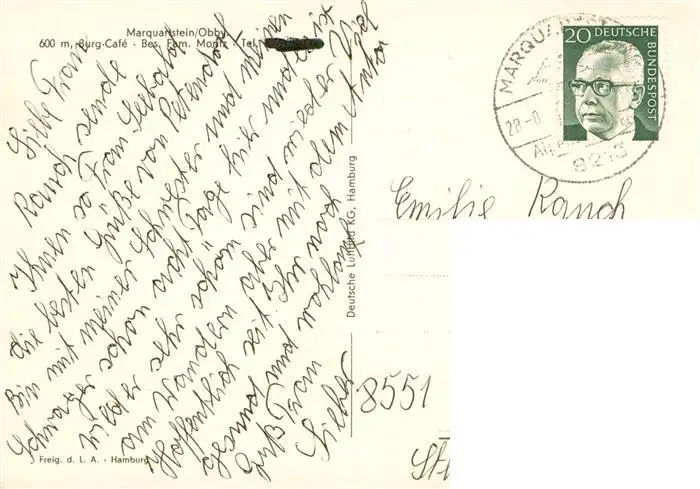 Marquartstein/Obby.
600 m, Burg-Café · Bes. Fam. Moritz · Tel.
Liebe Frau
Rauch sende
Ihnen so Frau Seibold
die besten Grüße von Petersdorf
Bin mit meiner Schwester und meinen
Schwager schon acht Tage hier und es ist
wieder sehr schön sind wieder viel
am Wandern aber mit dem Auto
Hoffentlich seit Ihr noch
gesund und wohlauf
Gruß Frau
Sieber
Freig. d. L. A. · Hamburg
Deutsche Luftbild KG, Hamburg
MARQUARTST
28.-8
8213
20 DEUTSCHE
BUNDESPOST
Emilie Rauch
8551